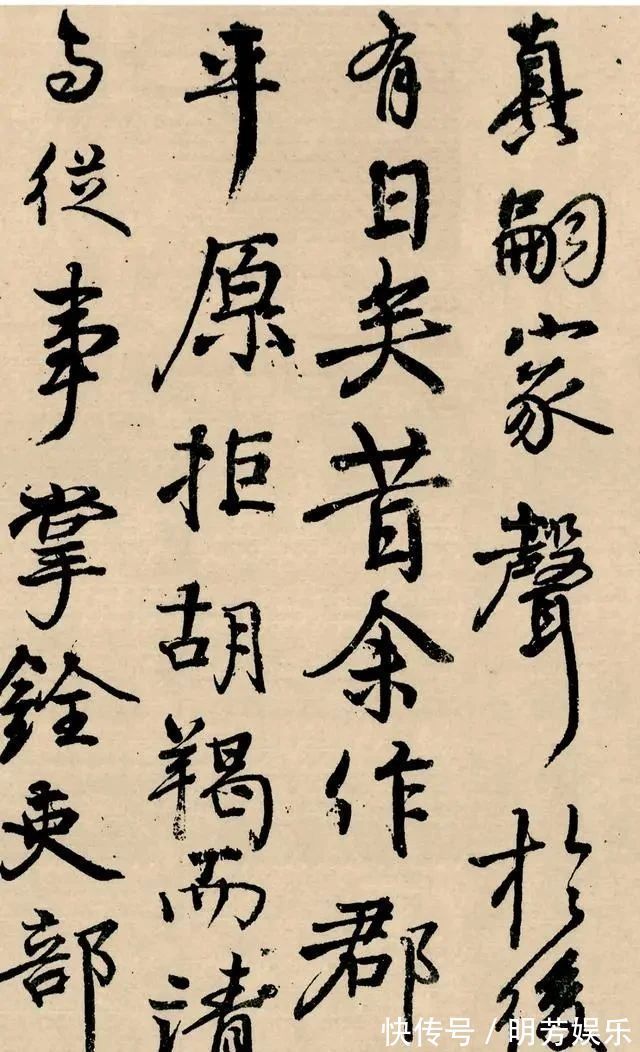 真嗣家聲於後
有日矣昔余作郡
平原拒胡羯而請
与從事掌銓吏部
快传号 / 明芳娱乐